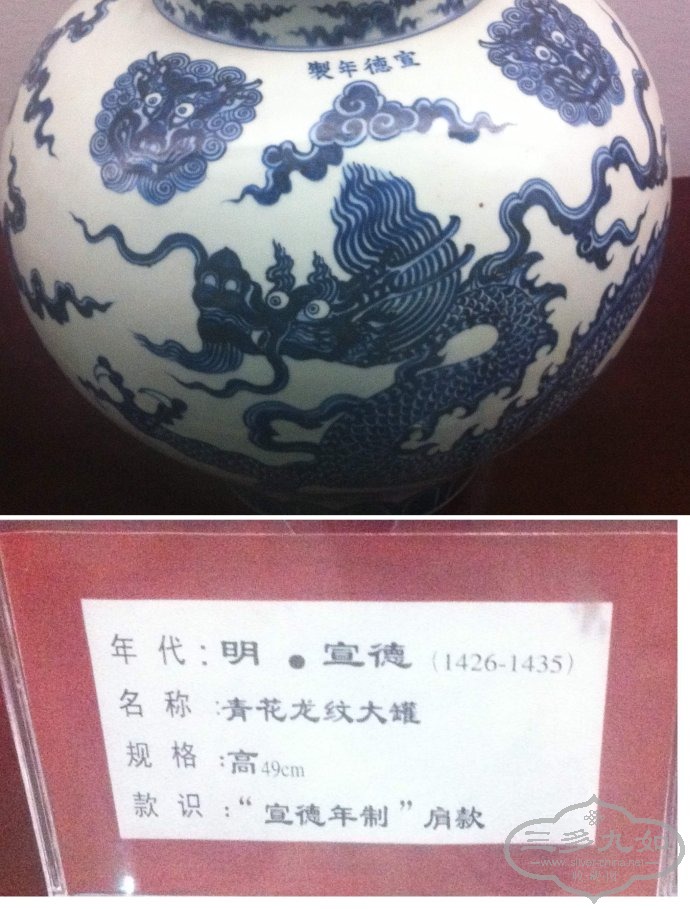 製年德宣
年代：明·宣德（1426-1435）
名称：青花龙纹大罐
规格：高49cm
款识：“宣德年制”肩款
三多九如